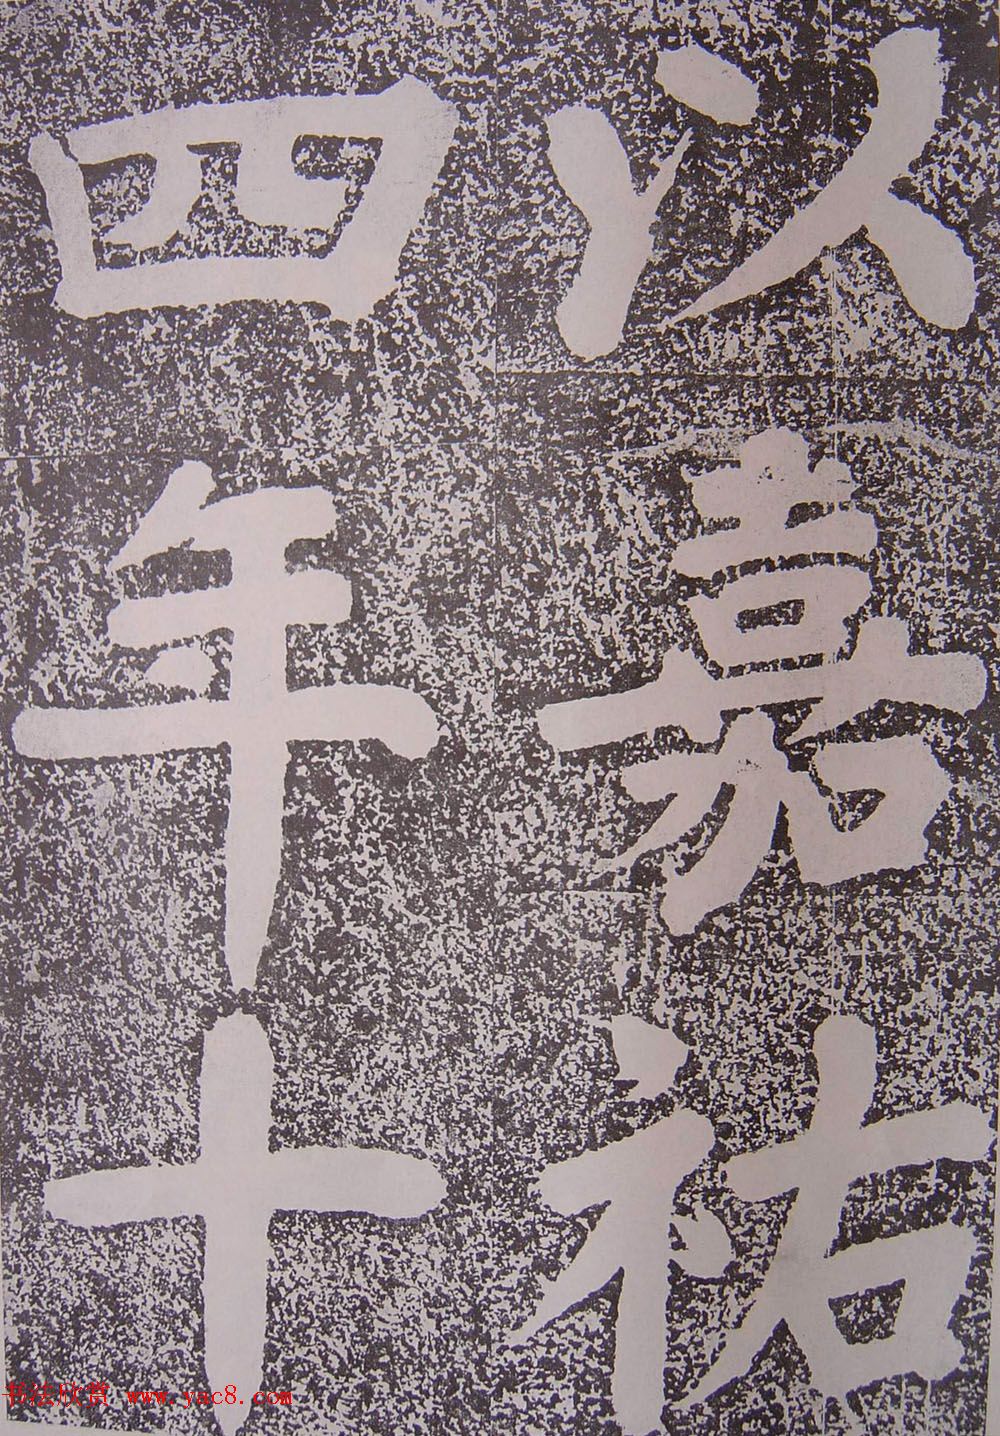 以嘉祐
四年十
书法欣赏 www.yac8.com